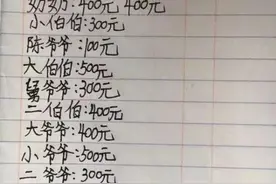 奶奶:400元 400元
小伯伯:300元
陈爷爷:100元
大伯伯:500元
舅爷爷:300元
二伯伯:400元
大爷爷:400元
小爷爷:500元
二爷爷:300元